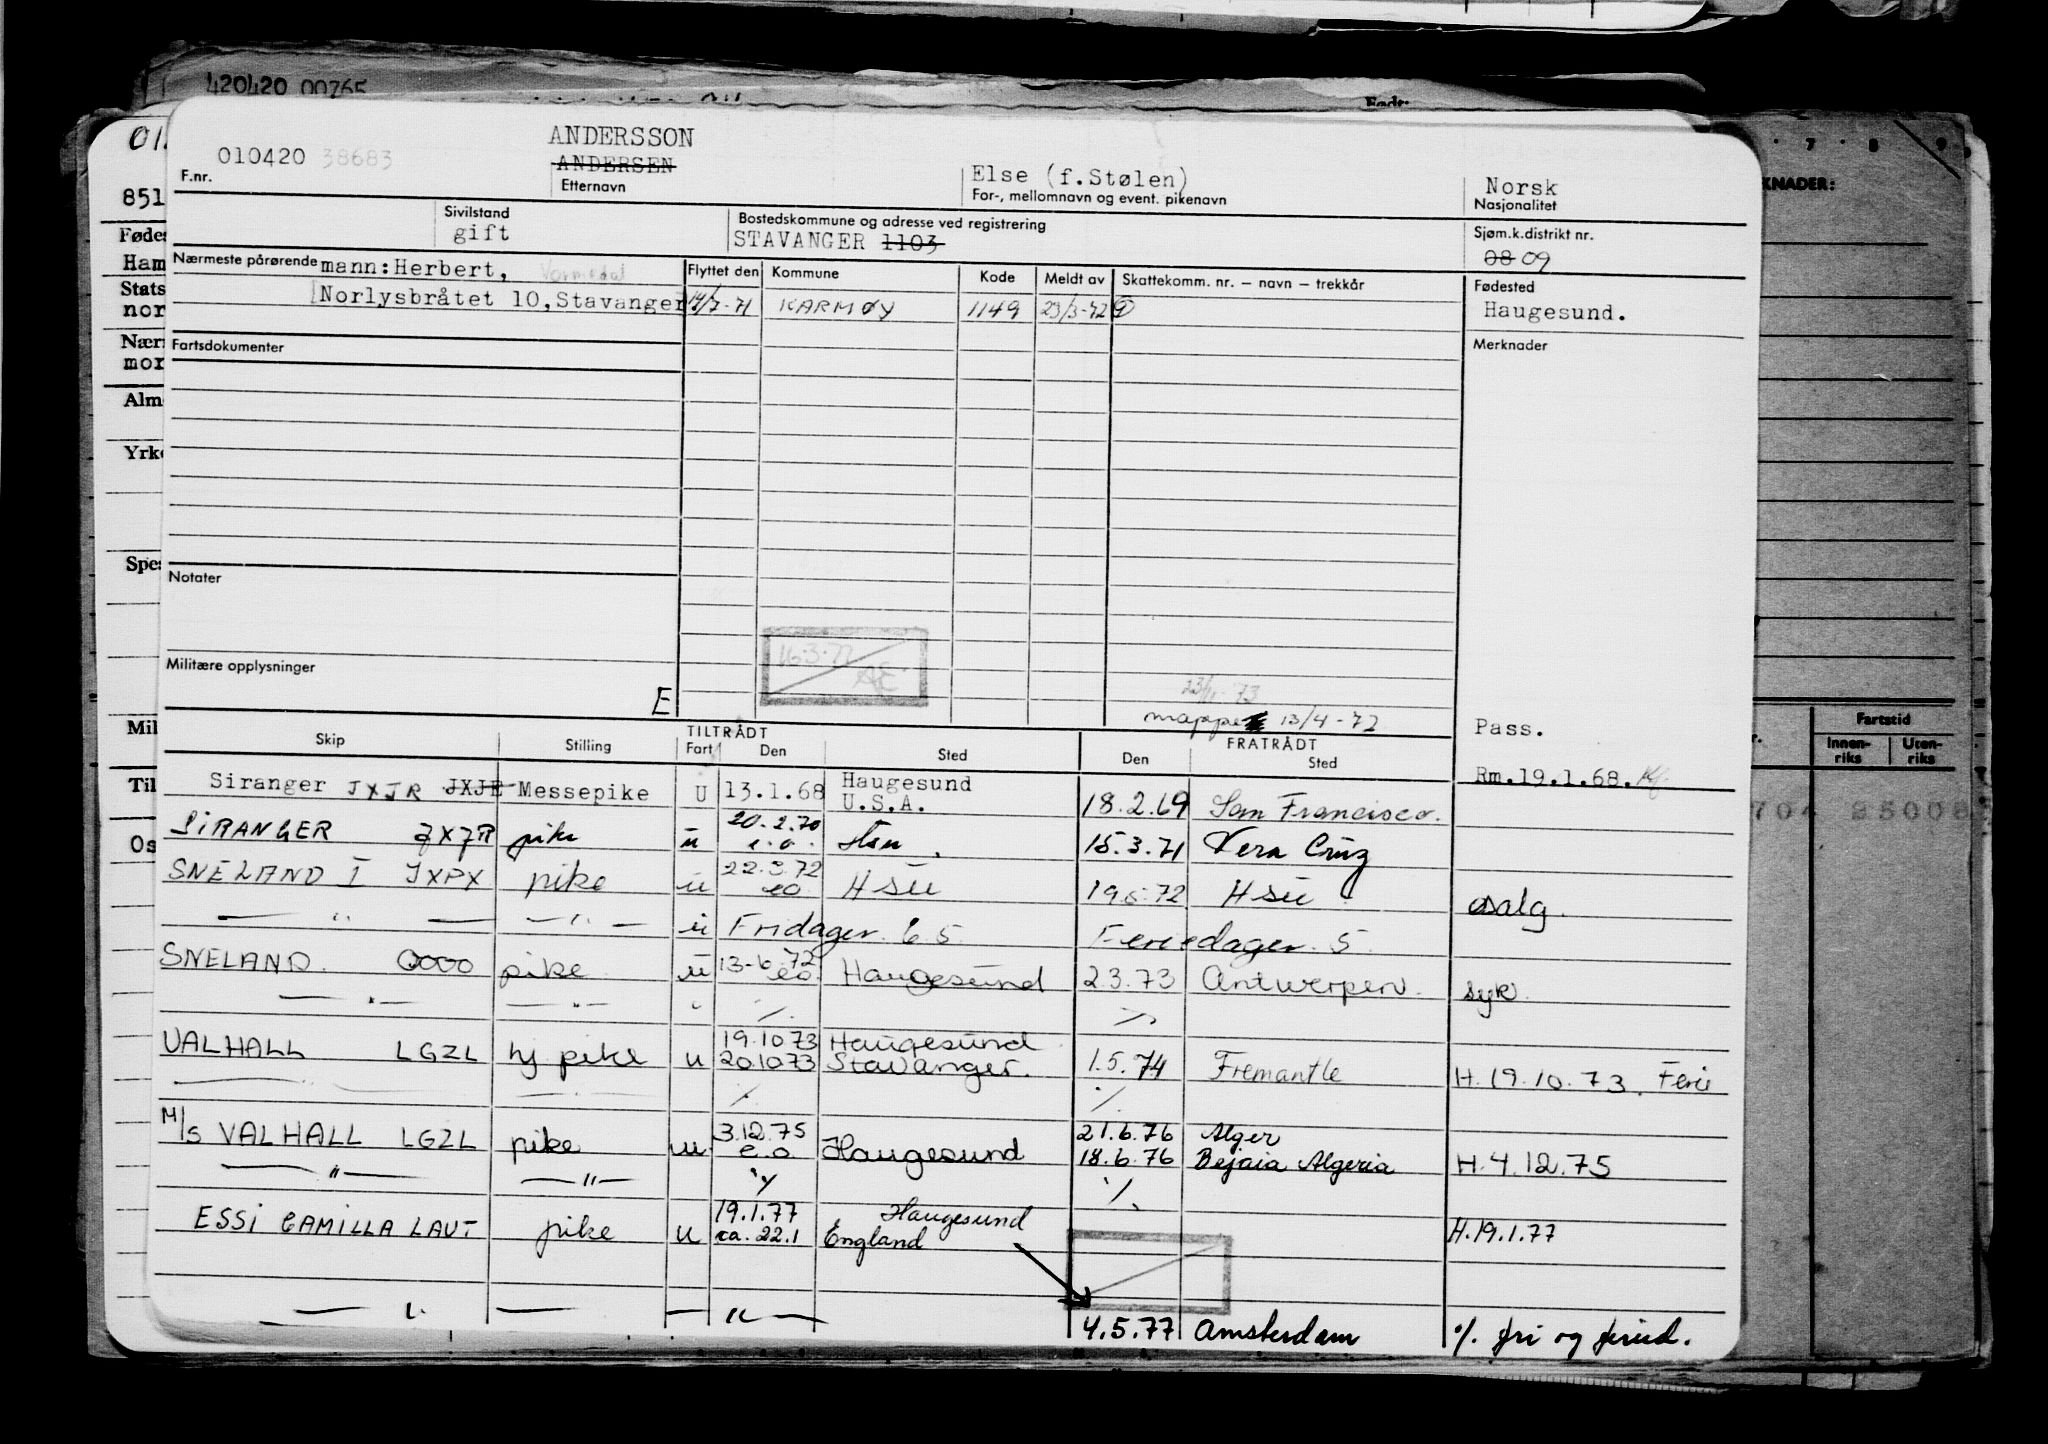 420420 00765
Født:
01
851
Føde
Ham
Stats
nor
Nær
mor
Alm
Yrk
Spe
Mil
Til
Os
7 8 9
KNADER:
Fartstid
Innen-riks Uten-riks
704 25008
ANDERSSON
010420 38683 ANDERSEN Else (f.Stølen) Norsk
F.nr. Etternavn For-, mellomnavn og event. pikenavn Nasjonalitet
Sivilstand Bostedskommune og adresse ved registrering Sjøm.k.distrikt nr.
gift STAVANGER 1103 08 09
Nærmeste pårørende mann: Herbert, Vormedal Flyttet den Kommune Kode Meldt av Skattekomm. nr. – navn – trekkår Fødested
Norlysbråtet 10, Stavanger 14/7-71 KARMØY 1149 23/3-72 Haugesund.
Fartsdokumenter Merknader
Notater
16.3.77
AE
Militære opplysninger
E
23/11-73
mappe 13/4-72 Pass.
Skip Stilling TILTRÅDT Fart Den Sted FRATRÅDT Den Sted
Rm.19.1.68.
Siranger JXJR JXJE Messepike U 13.1.68 Haugesund U.S.A. 18.2.69 San Francisco.
SIRANGER JXJR pike u 20.2.70 e.o. Hsu. 15.3.71 Vera Cruz
SNELAND I JXPX pike u 22.3.72 eo. Hsu 19.5.72 Hsu asalg.
— " — — " — u Fridager. 65 Feriedager. 5
SNELAND. OOOO pike u 13-6.72 eo. Haugesund 2.3.73 Antwerpen. syk.
— " — — " — " ./. ./.
VALHALL LGZL hj pike u 19.10 73 Haugesund 20.10 73 Stavanger. 1.5.74 Fremantle H.19.10.73. Ferie
./. ./.
M/S VALHALL LGZL pike u 3.12.75 e.o Haugesund 21.6.76 Alger 18.6.76 Bejaia Algeria H.4.12.75
— " — — " — ./. ./.
ESSI CAMILLA LAUT pike u 19.1.77 Haugesund ca. 22.1 England H.19.1.77
— " — — — " — 4.5.77 Amsterdam ./. fri og feried.